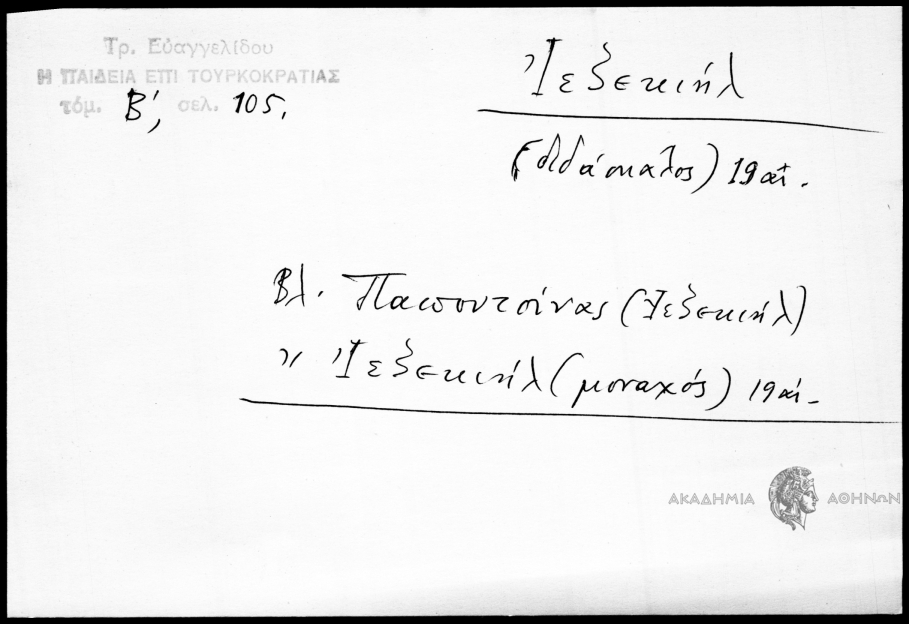 Τρ. Εὐαγγελίδου
Η ΠΑΙΔΕΙΑ ΕΠΙ ΤΟΥΡΚΟΚΡΑΤΙΑΣ
τόμ. Β', σελ. 105.
Ἰεζεκιήλ
(διδάσκαλος) 19 αἰ.
Βλ. (Ἰεζεκιήλ)
" Ἰεζεκιήλ (μοναχός) 19 αἰ.
ΑΚΑΔΗΜΙΑ ΑΘΗΝΩΝ